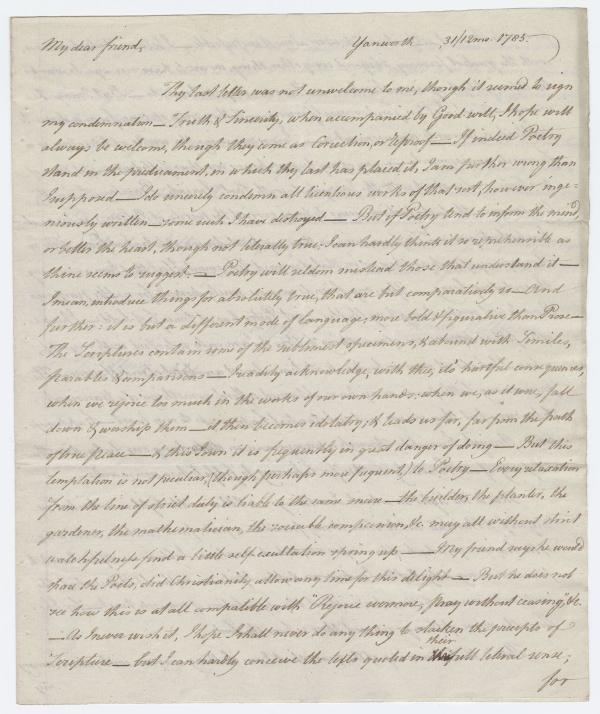 My dear friend, Yanworth 31/12mo. 1785.
Thy last letter was not unwelcome to me, though it seemed to sign
my condemnation — Truth & Sincerity, when accompanied by Good will, I hope will
always be welcome, though they come as Correction, or Reproof — If indeed Poetry
stand in the predicament, in which thy last has placed it, I am further wrong than
I supposed — I do sincerely condemn all licentious works of that sort, however inge-
niously written — some such I have destroyed — But if Poetry tend to inform the mind,
or better the heart, though not literally true; I can hardly think it so reprehensible as
thine seems to suggest. — Poetry will seldom mislead those that understand it —
I mean, introduce things for absolutely true, that are but comparatively so — And
further: it is but a different mode of language; more bold & figurative than Prose —
The Scriptures contain some of the sublimest specimens, & abound with Similes,
parables & comparisons — I readily acknowledge, with thee, it's hurtful consequences,
when we rejoice too much in the works of our own hands: when we, as it were, fall
down & worship them — it then becomes idolatry; & leads us far, far from the path
of true peace — & this I own it is frequently in great danger of doing — But this
temptation is not peculiar, (though perhaps more frequent,) to Poetry — Every relaxation
from the line of strict duty is liable to the same snare — the builder, the planter, the
gardener, the mathematician, the sociable companion, &c. may all without strict
watchfulness find a little self-exultation spring up — My friend says he would
share the Poets, did Christianity allow any time for this delight — But he does not
see how this is at all compatible with "Rejoice evermore, pray without ceasing," &c.
— As I never wish it, I hope I shall never do any thing to slacken the precepts of
Scripture — but I can hardly conceive the texts quoted in their full literal sense;
for